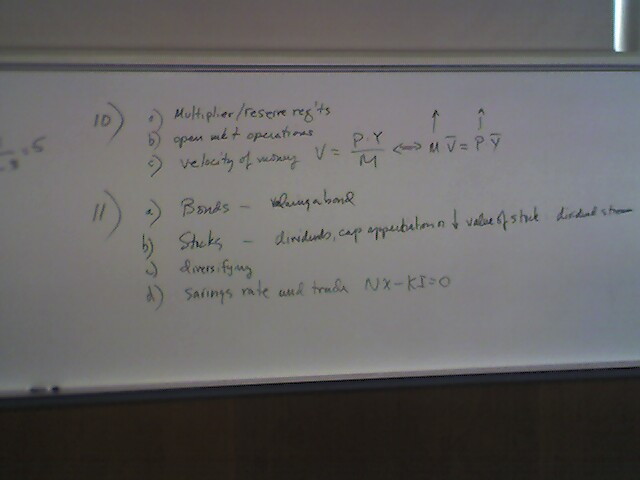 10) a) Multiplier/reserve req'ts
b) open mkt operations
c) velocity of money V = P·Y/M <=> M V̄ = P Ȳ
11) a) Bonds - valuing a bond
b) Stocks - dividends, cap appreciation ↓ value of stock dividend stream
c) diversifying
d) savings rate and trade NX-KI=0